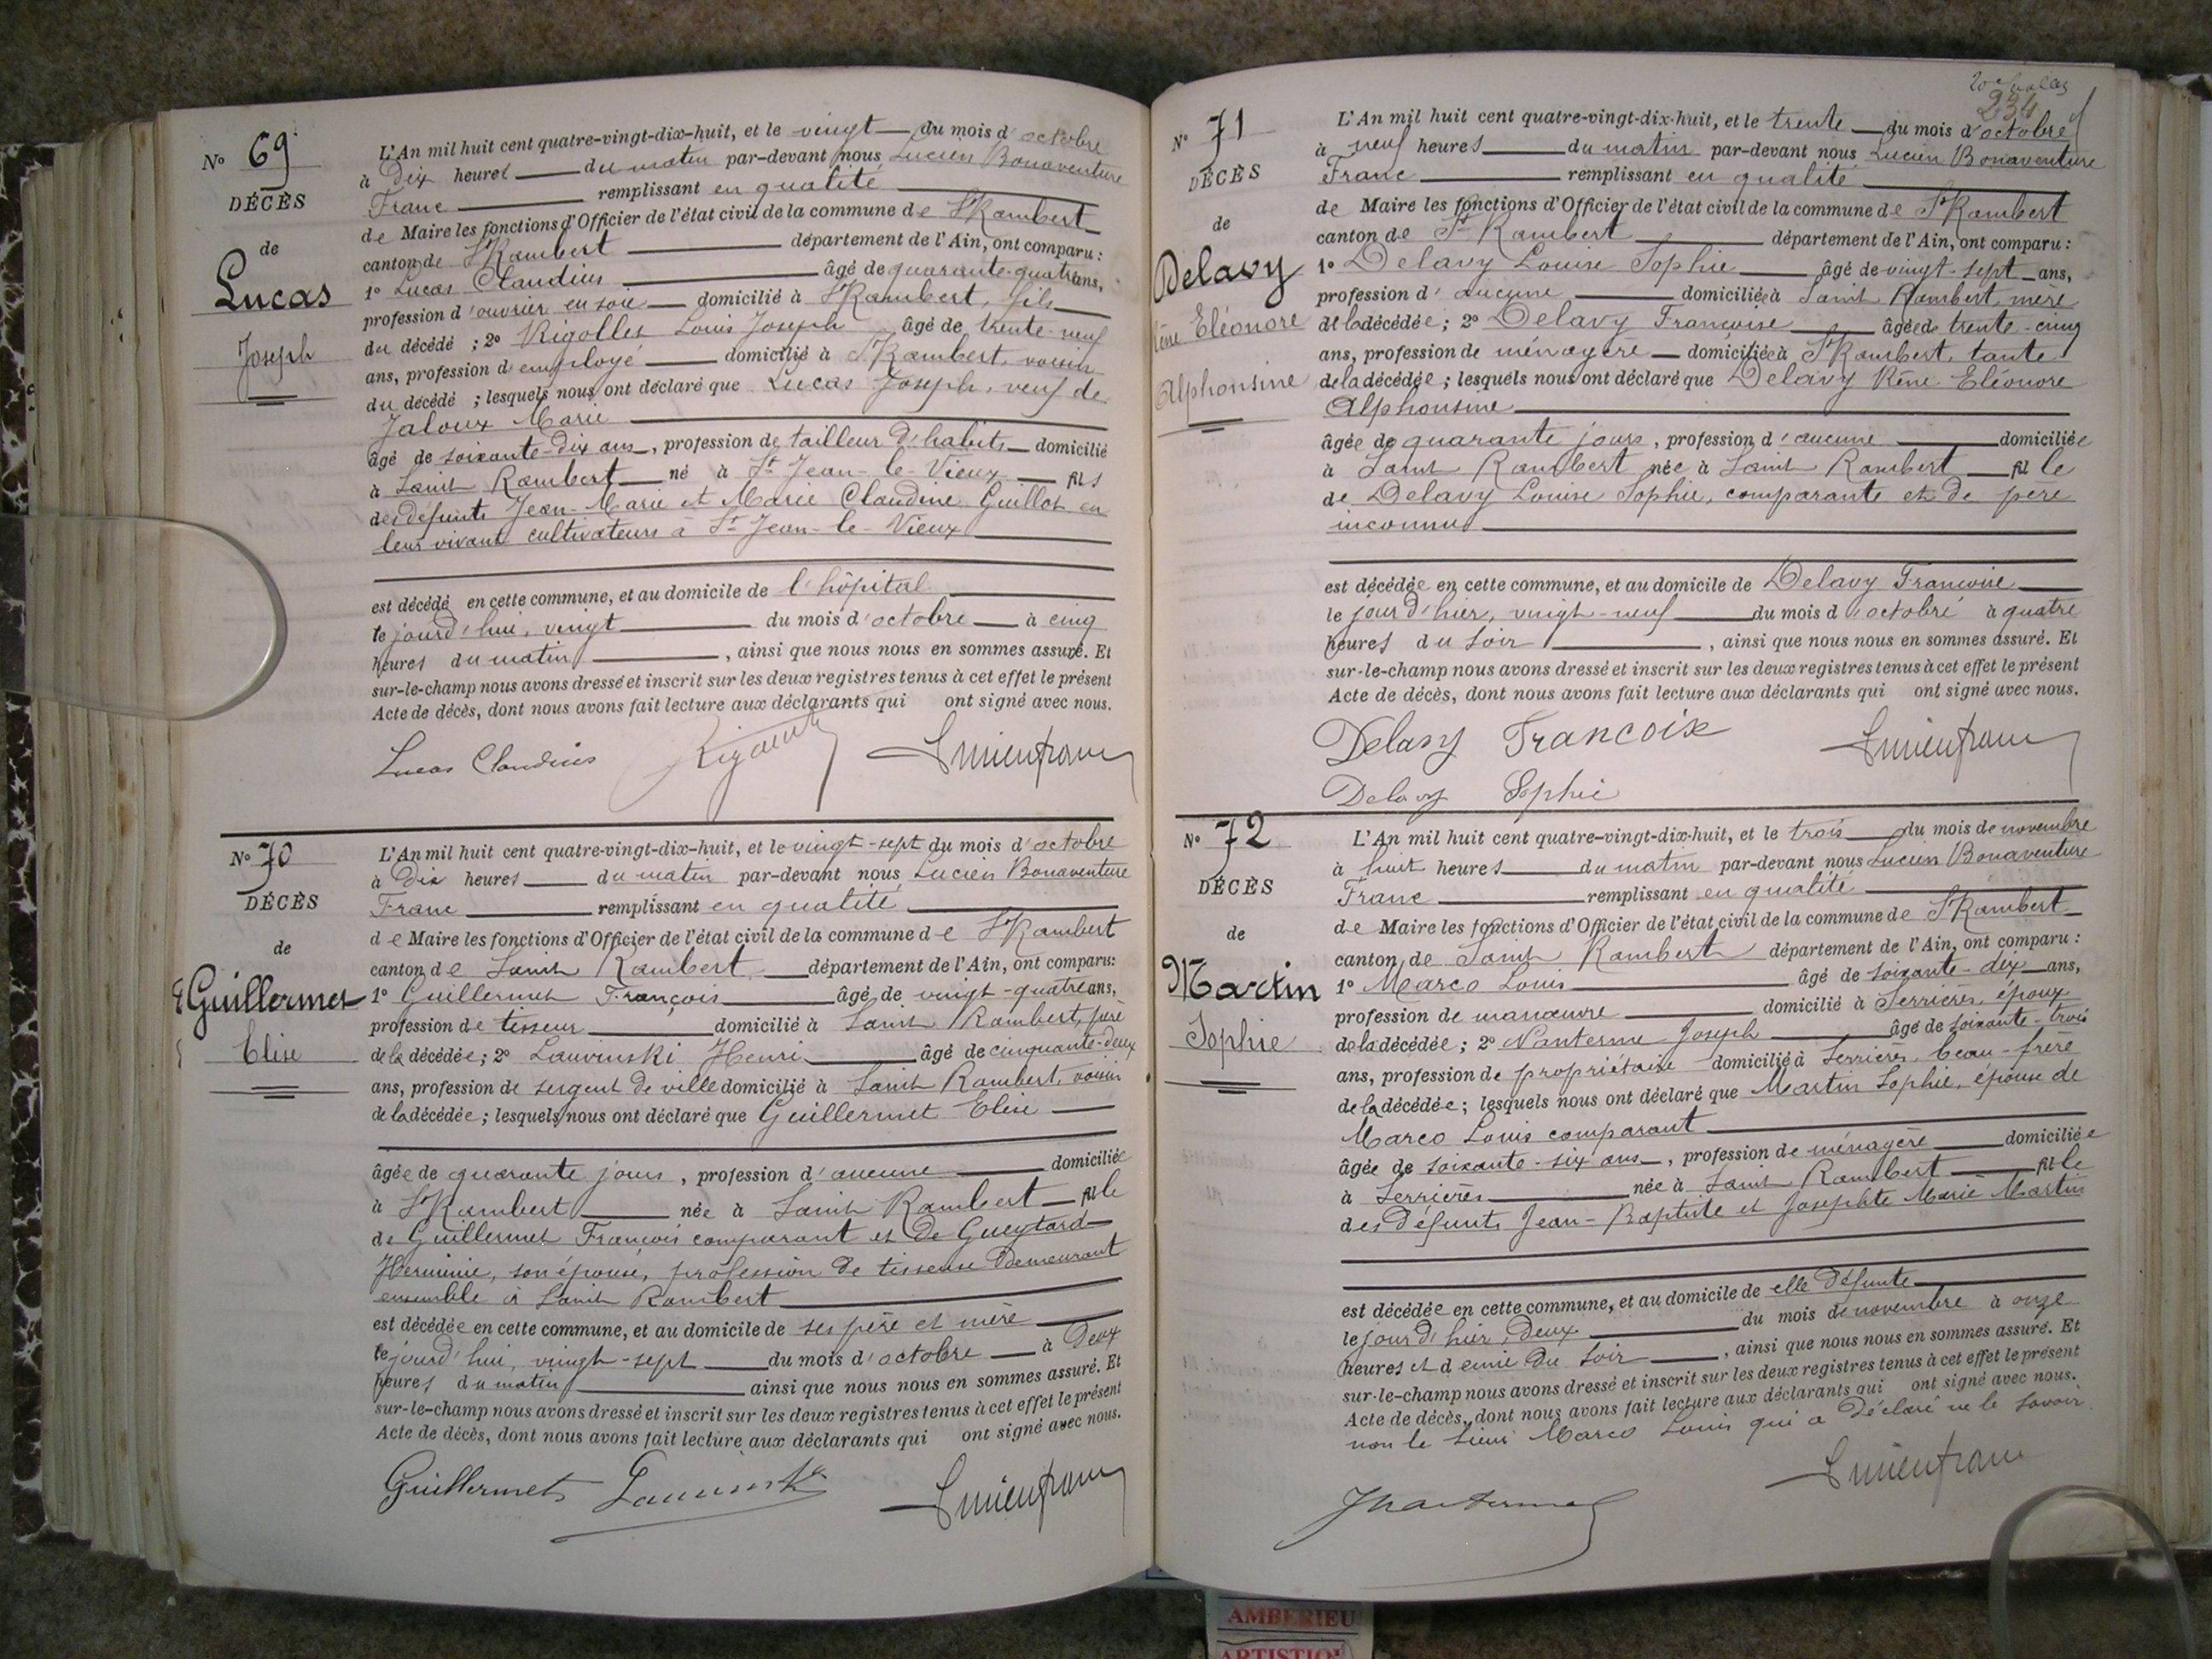 Nº 69
DÉCÈS
de
Lucas
Joseph
L'An mil huit cent quatre-vingt-dix-huit, et le vingt du mois d'octobre
à dix heures du matin par-devant nous Lucien Bonaventure
Franc remplissant en qualité
de Maire les fonctions d'Officier de l'état civil de la commune de St Rambert
canton de St Rambert département de l'Ain, ont comparu :
1º Lucas Claudius âgé de quarante-quatre ans,
profession d'ouvrier en soie domicilié à St Rambert, fils
du décédé ; 2º Rigollet Louis Joseph âgé de trente-neuf
ans, profession d'employé domicilié à St Rambert, voisin
du décédé ; lesquels nous ont déclaré que Lucas Joseph, veuf de
Jaloux Marie
âgé de soixante-dix ans, profession de tailleur d'habits domicilié
à Saint Rambert né à St Jean-le-Vieux fils
des défunts Jean-Marie et Marie Claudine Guillot en
leur vivant cultivateurs à St Jean-le-Vieux
est décédé en cette commune, et au domicile de l'hôpital
le jourd'hui, vingt du mois d'octobre à cinq
heures du matin, ainsi que nous nous en sommes assuré. Et
sur-le-champ nous avons dressé et inscrit sur les deux registres tenus à cet effet le présent
Acte de décès, dont nous avons fait lecture aux déclarants qui ont signé avec nous.
Lucas Claudius
Nº 70
DÉCÈS
de
Guillermet
Elise
L'An mil huit cent quatre-vingt-dix-huit, et le vingt-sept du mois d'octobre
à dix heures du matin par-devant nous Lucien Bonaventure
Franc remplissant en qualité
de Maire les fonctions d'Officier de l'état civil de la commune de St Rambert
canton de Saint Rambert département de l'Ain, ont comparu:
1º Guillermet François âgé de vingt-quatre ans,
profession de tisseur domicilié à Saint Rambert, père
de la décédée; 2º Lauvinski Henri âgé de cinquante-deux
ans, profession de sergent de ville domicilié à Saint Rambert, voisin
de la décédée; lesquels nous ont déclaré que Guillermet Elise
âgée de quarante jours, profession d'aucune domiciliée
à St Rambert née à Saint Rambert fille
de Guillermet François comparant et de Gueytard
Herminie, son épouse, profession de tisseuse demeurant
ensemble à Saint Rambert
est décédée en cette commune, et au domicile de ses père et mère
le jourd'hui, vingt-sept du mois d'octobre à deux
heures du matin ainsi que nous nous en sommes assuré. Et
sur-le-champ nous avons dressé et inscrit sur les deux registres tenus à cet effet le présent
Acte de décès, dont nous avons fait lecture aux déclarants qui ont signé avec nous.
Guillermet
234
Nº 71
DÉCÈS
de
Delavy
Rène Eléonore
Alphonsine
L'An mil huit cent quatre-vingt-dix-huit, et le trente du mois d'octobre
à neuf heures du matin par-devant nous Lucien Bonaventure
Franc remplissant en qualité
de Maire les fonctions d'Officier de l'état civil de la commune de St Rambert
canton de St Rambert département de l'Ain, ont comparu :
1º Delavy Louise Sophie âgé de vingt-sept ans,
profession d'aucune domiciliée à Saint Rambert, mère
de la décédée; 2º Delavy Françoise âgée de trente-cinq
ans, profession de ménagère domiciliée à St Rambert, tante
de la décédée ; lesquels nous ont déclaré que Delavy Rène Eléonore
Alphonsine
âgée de quarante jours, profession d'aucune domiciliée
à Saint Rambert née à Saint Rambert fille
de Delavy Louise Sophie, comparante et de père
inconnu
est décédée en cette commune, et au domicile de Delavy Françoise
le jour d'hier, vingt-neuf du mois d'octobre à quatre
heures du soir, ainsi que nous nous en sommes assuré. Et
sur-le-champ nous avons dressé et inscrit sur les deux registres tenus à cet effet le présent
Acte de décès, dont nous avons fait lecture aux déclarants qui ont signé avec nous.
Delavy Francoise
Delavy Sophie
Nº 72
DÉCÈS
de
Martin
Sophie
L'An mil huit cent quatre-vingt-dix-huit, et le trois du mois de novembre
à huit heures du matin par-devant nous Lucien Bonaventure
Franc remplissant en qualité
de Maire les fonctions d'Officier de l'état civil de la commune de St Rambert
canton de Saint Rambert département de l'Ain, ont comparu :
1º Marco Louis âgé de soixante-dix ans,
profession de manœuvre domicilié à Serrières, époux
de la décédée ; 2º Nanterme Joseph âgé de soixante-trois
ans, profession de propriétaire domicilié à Serrières, beau-frère
de la décédée; lesquels nous ont déclaré que Martin Sophie, épouse de
Marco Louis comparant
âgée de soixante-six ans, profession de ménagère domiciliée
à Serrières née à Saint Rambert fille
des défunts Jean-Baptiste et Josephte Marie Martin
est décédée en cette commune, et au domicile de elle défunte
le jour d'hier, deux du mois de novembre à onze
heures et demie du soir, ainsi que nous nous en sommes assuré. Et
sur-le-champ nous avons dressé et inscrit sur les deux registres tenus à cet effet le présent
Acte de décès, dont nous avons fait lecture aux déclarants qui ont signé avec nous.
non le sieur Marco Louis qui a déclaré ne le savoir.
AMBERIEU